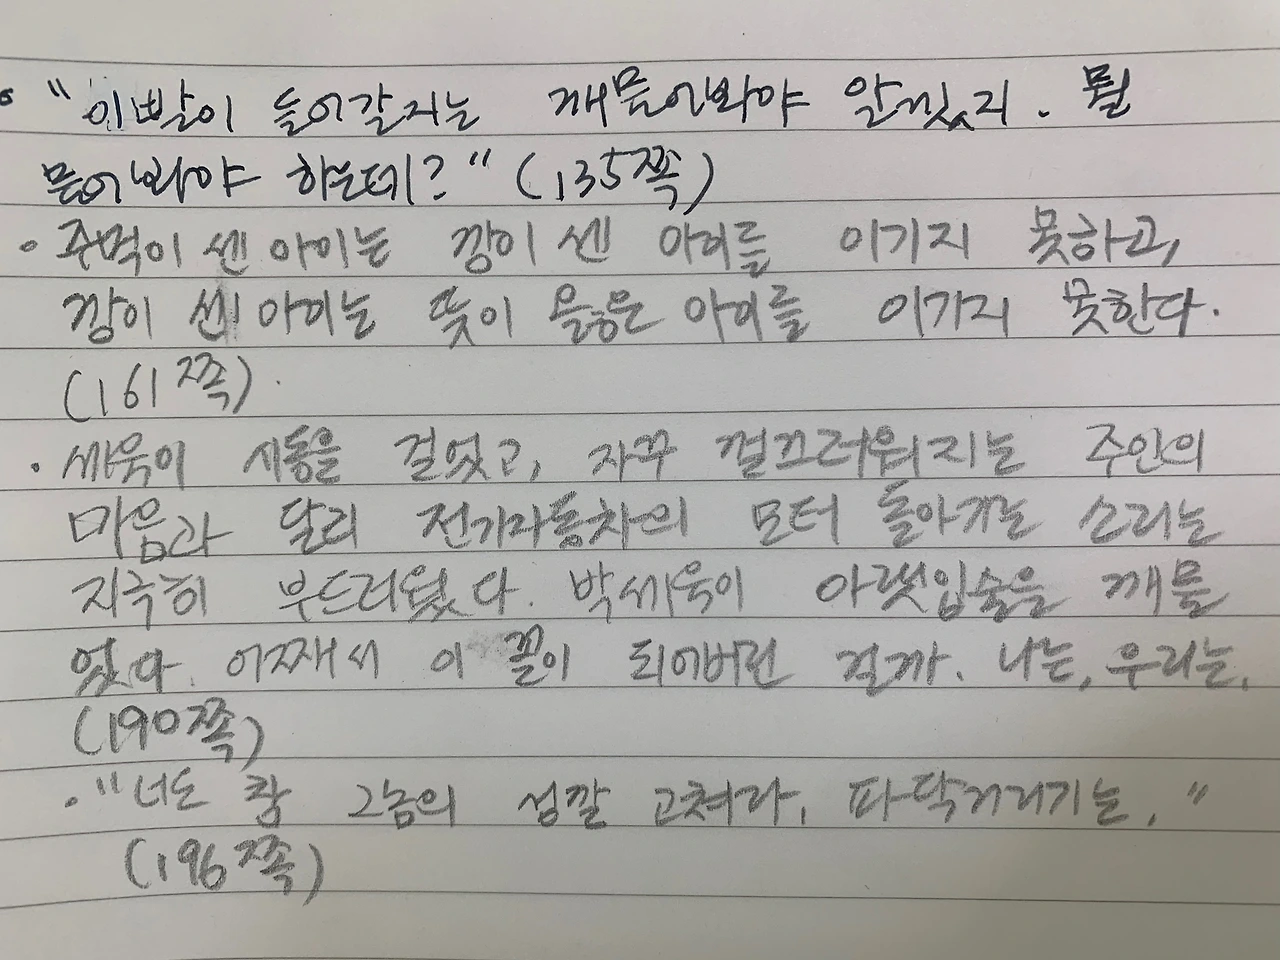 • "이빨이 들어갈지는 깨물어봐야 알겠지. 뭘
물어봐야 하는데?" (135쪽)
• 주먹이 센 아이는 깡이 센 아이를 이기지 못하고,
깡이 센 아이는 뜻이 옳은 아이를 이기지 못한다.
(161쪽)
• 세욱이 시동을 걸었고, 자꾸 껄끄러워지는 주인의
마음과 달리 전기자동차의 모터 돌아가는 소리는
지극히 부드러웠다. 박세욱이 아랫입술을 깨물
었다. 어째서 이 꼴이 되어버린 걸까. 나는, 우리는.
(190쪽)
• "너도 참 그놈의 성깔 고쳐라, 파닥거리기는."
(196쪽)